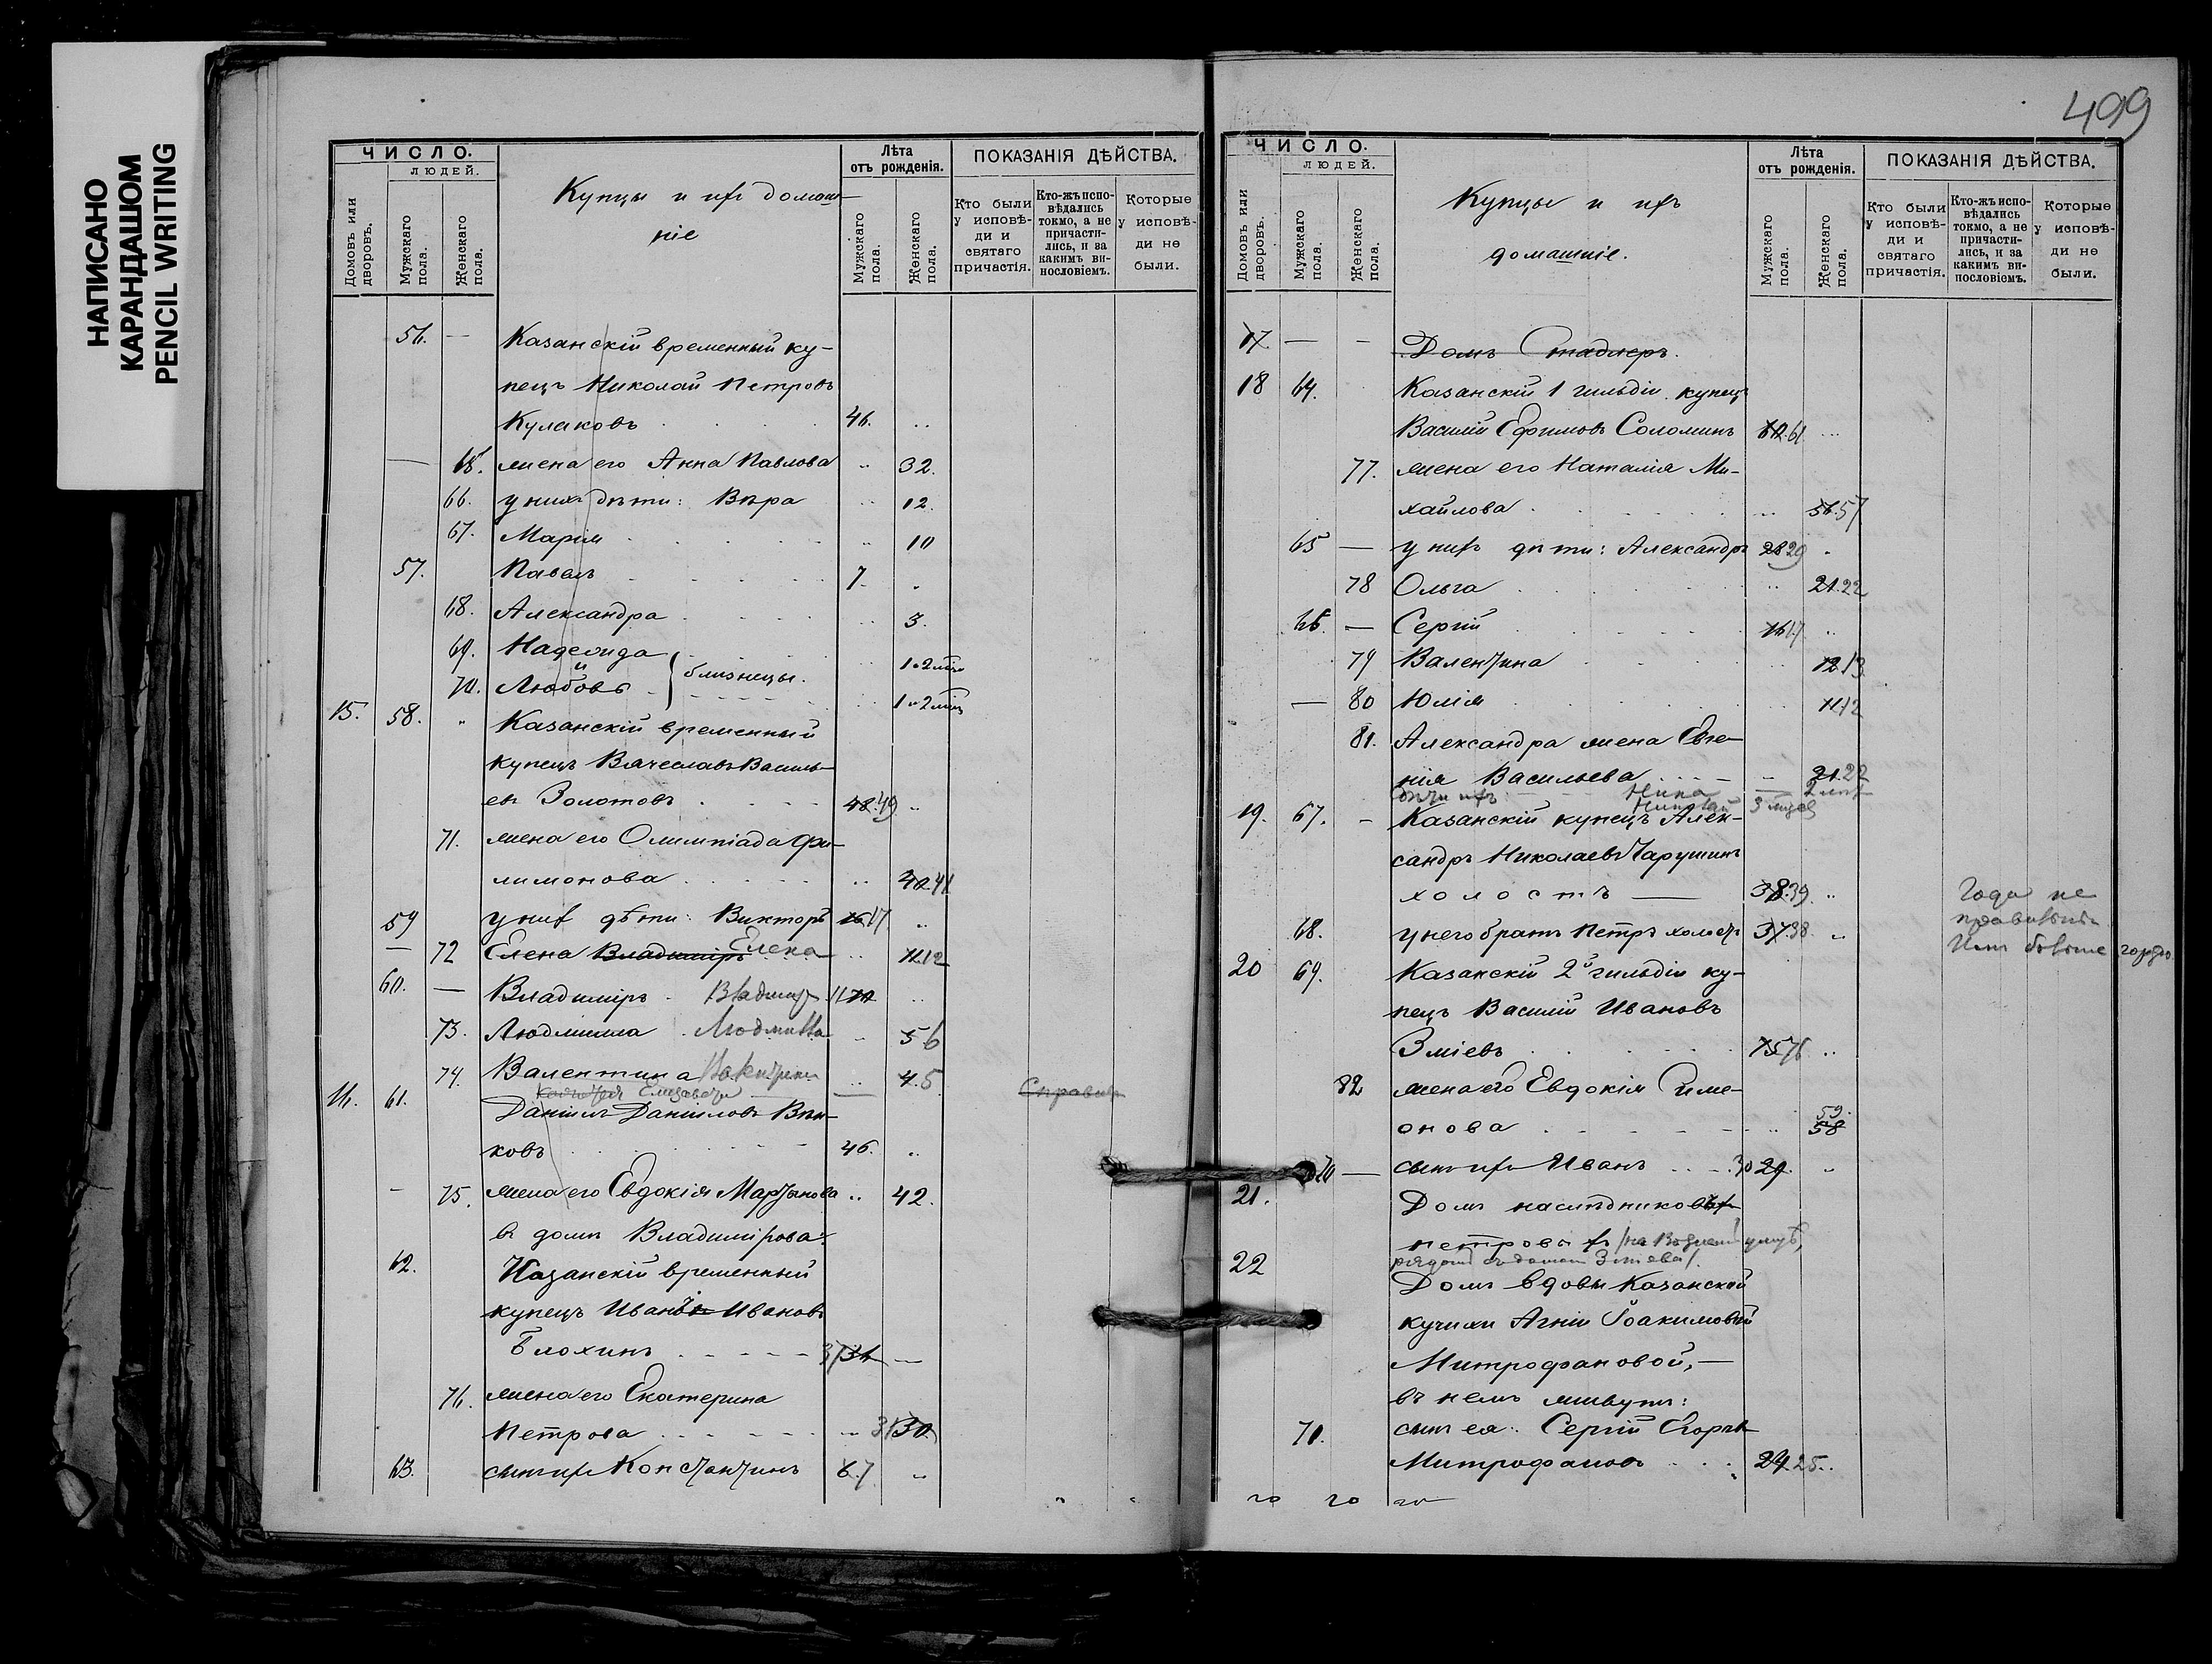 НАПИСАНО
КАРАНДАШОМ
PENCIL WRITING
ЧИСЛО.
ЛЮДЕЙ.
Домовъ или дворовъ.
Мужскаго пола.
Женскаго пола.
Купцы и ихъ домаш-
ніе
Лѣта
отъ рожденія.
Мужскаго пола.
Женскаго пола.
ПОКАЗАНІЯ ДѢЙСТВА.
Кто были у исповѣ-ди и святаго причастія.
Кто-жъ испо-вѣдались токмо, а не причасти-лись, и за какимъ ви-нословіемъ.
Которые у исповѣ-ди не были.
56. — Казанскій временный ку-
пецъ Николай Петровъ
Кулаковъ 46.
— 65. жена его Анна Павлова 32.
66. у нихъ дѣти: Вѣра 12.
67. Марія 10
57. Павелъ 7.
68. Александра 3.
69. Надежда 1.2 мѣс
и } близнецы.
70. Любовь 1.2 мѣс
15. 58. Казанскій временный
купецъ Вячеславъ Василь-
евъ Золотовъ 48.49
71. жена его Олимпіада Фи-
лимонова 40.41
59 у них дѣти: Викторъ 16 17
— 72 Елена Владимiръ Елена 11.12
60. — Владиміръ Владимір 11 10
73. Людмила Людмила 5 6
74. Валентина Валентина 4.5
Елизавета Справить
16. 61. Даніилъ Даниловъ Вѣн-
ковъ 46.
— 75. жена его Евдокія Мартынова 42.
въ домѣ Владимірова:
62. Казанскій временный
купецъ Иванъ Ивановъ
Блохинъ 37 36 —
76. жена его Екатерина
Петрова 31 30
63. сынъ ихъ Константинъ 6.7
499
ЧИСЛО.
ЛЮДЕЙ.
Домовъ или дворовъ.
Мужскаго пола.
Женскаго пола.
Купцы и ихъ
домашніе.
Лѣта
отъ рожденія.
Мужскаго пола.
Женскаго пола.
ПОКАЗАНІЯ ДѢЙСТВА.
Кто были у исповѣ-ди и святаго причастія.
Кто-жъ испо-вѣдались токмо, а не причасти-лись, и за какимъ ви-нословіемъ.
Которые у исповѣ-ди не были.
17. — — Домъ Стадлеръ.
18 64. Казанскій 1 гильдіи купецъ
Василій Ефимовъ Соломинъ 60.61
77. жена его Наталія Ми-
хайлова 56.57
65 — у нихъ дѣти: Александръ 28 29
78 Ольга 21.22
66. — Сергій 16 17
79 Валентина 12 13
— 80 Юлія 11 12
81. Александра жена Евге-
нія Васильева 21.22
Дѣти ихъ Нина — 2 лѣт
Николай 3 мѣсяц
19. 67. — Казанскій купецъ Алек-
сандръ Николаевъ Чарушинъ
холостъ — 38.39
Года не
правильны
Им больше гораздо
68. у него братъ Петръ холостъ 37 38
20 69. Казанскій 2й гильдіи ку-
пецъ Василій Ивановъ
Зміевъ 75 76
82 жена его Евдокія Симе-
онова 59. 58
70 — сынъ ихъ Иванъ 30 29.
21. Домъ наслѣдниковъ
Петрова /на Вознесен улицѣ,
рядом съ домом Зміева/.
22 Домъ вдовы Казанской
купчихи Агніи Іоакимовой
Митрофановой, —
въ немъ живутъ:
71. сынъ ея: Сергій Егоровъ
Митрофановъ 24.25